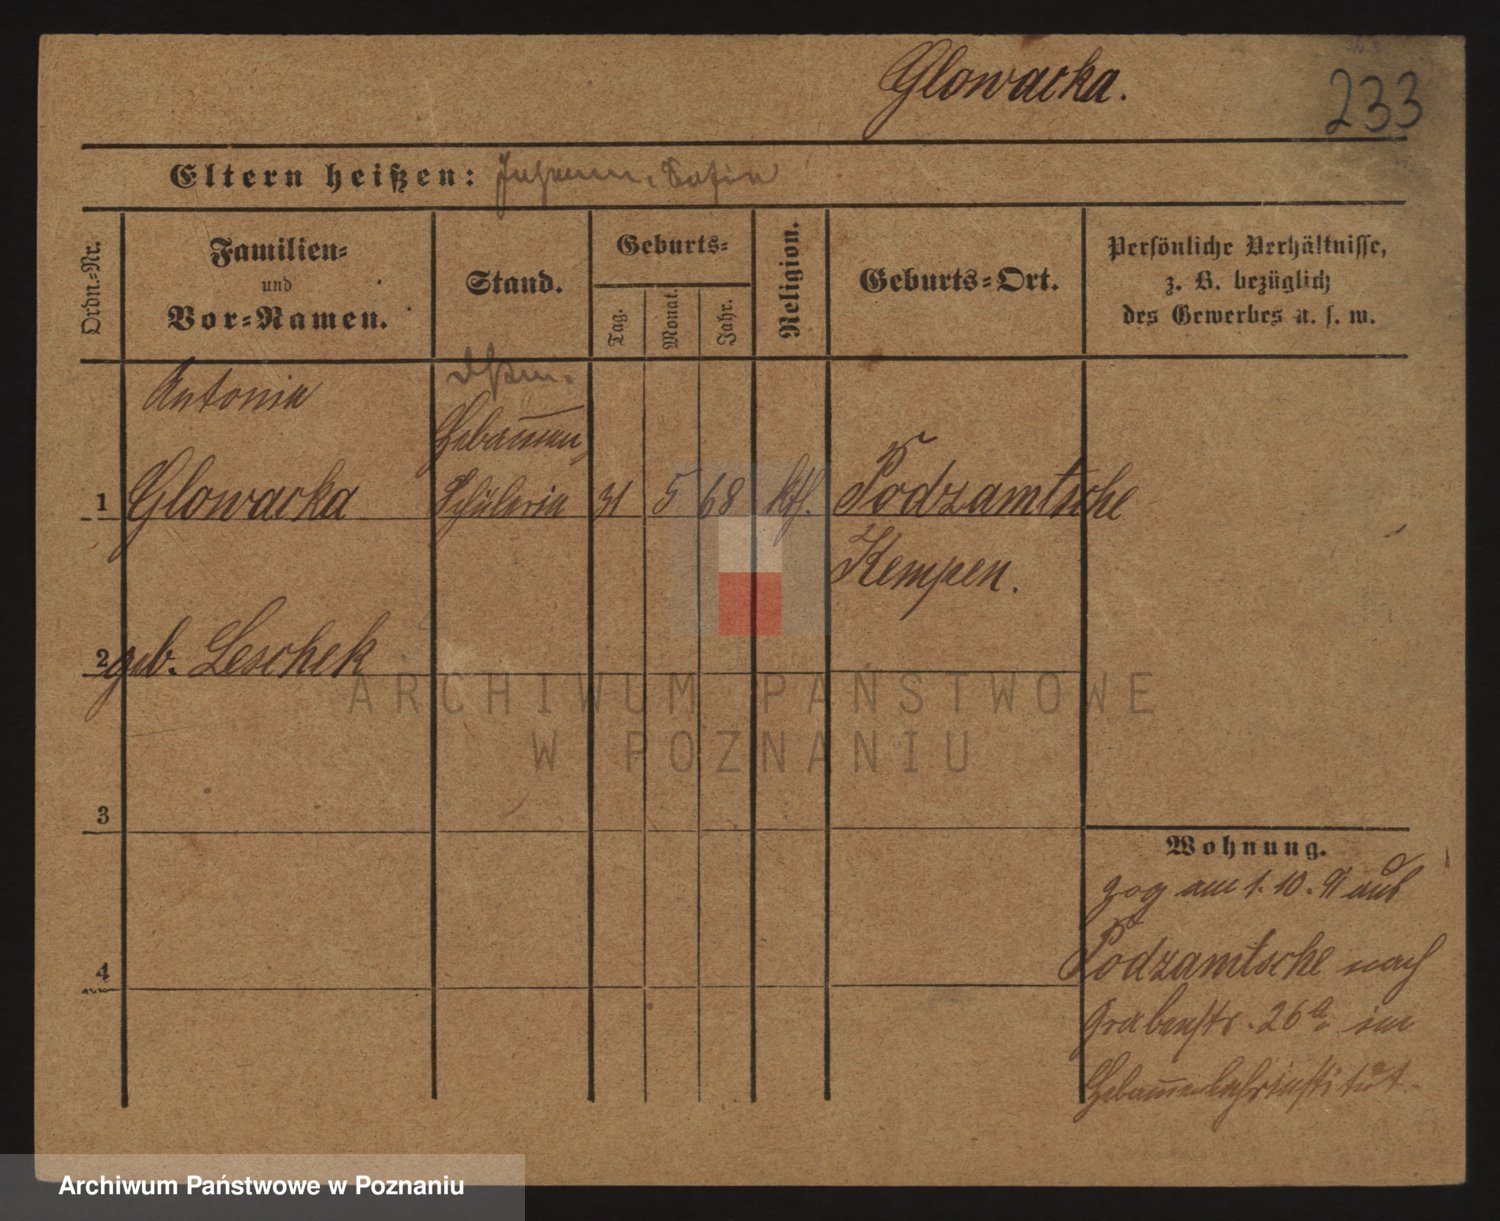 Glowacka.
233
Eltern heißen: Johann, Sofia
Ordn.-Nr.
Familien-
und
Vor-Namen.
Stand.
Geburts-
Tag.
Monat.
Jahr.
Religion.
Geburts-Ort.
Persönliche Verhältnisse,
z. B. bezüglich
des Gewerbes u. s. w.
Antonia
Hebam̅en
1 Glowacka Schülerin 31 5 68 kth. Podzamtsche
Kempen.
2 geb. Leschek
3
4
Wohnung.
zog am 1. 10. 91 aus
Podzamtsche nach
Grabenstr. 26a im
Hebam̅enlehrinstitut.
ARCHIWUM PAŃSTWOWE
W POZNANIU
Archiwum Państwowe w Poznaniu